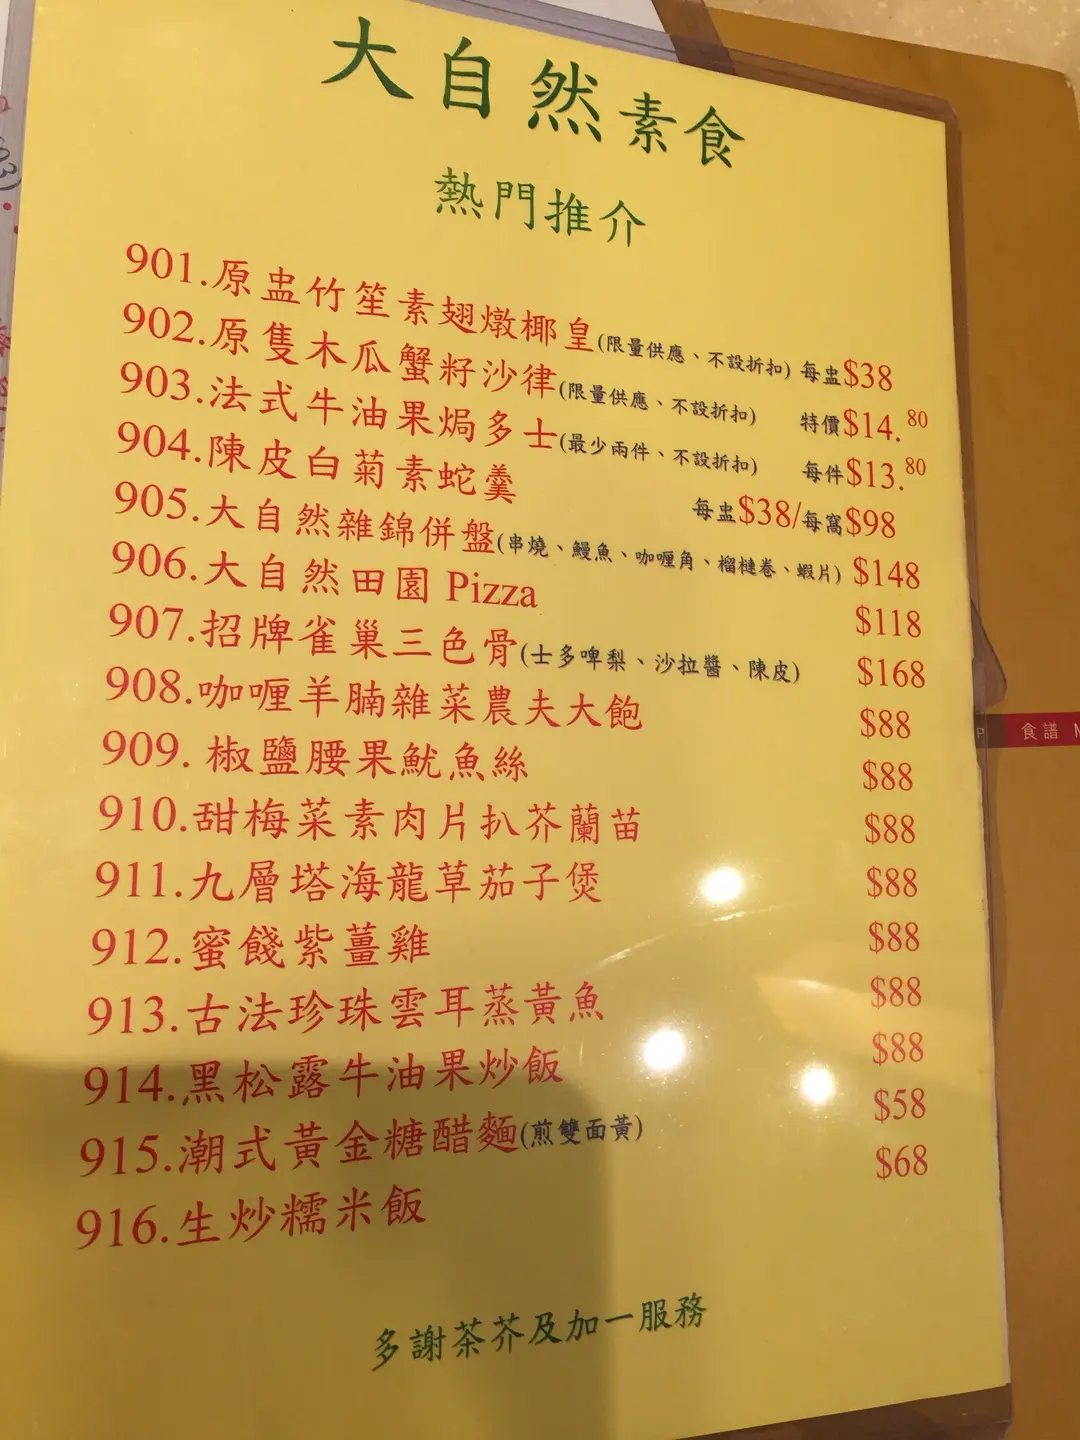 大自然素食
熱門推介
901.原盅竹笙素翅燉椰皇(限量供應、不設折扣) 每盅$38
902.原隻木瓜蟹籽沙律(限量供應、不設折扣) 特價$14.80
903.法式牛油果焗多士(最少兩件、不設折扣) 每件$13.80
904.陳皮白菊素蛇羹 每盅$38/每窩$98
905.大自然雜錦併盤(串燒、鰻魚、咖喱角、榴槤卷、蝦片) $148
906.大自然田園 Pizza $118
907.招牌雀巢三色骨(士多啤梨、沙拉醬、陳皮) $168
908.咖喱羊腩雜菜農夫大飽 $88
909. 椒鹽腰果魷魚絲 $88
910.甜梅菜素肉片扒芥蘭苗 $88
911.九層塔海龍草茄子煲 $88
912.蜜餞紫薑雞 $88
913.古法珍珠雲耳蒸黃魚 $88
914.黑松露牛油果炒飯 $88
915.潮式黃金糖醋麵(煎雙面黃) $58
916.生炒糯米飯 $68
多謝茶芥及加一服務
P 食譜 M